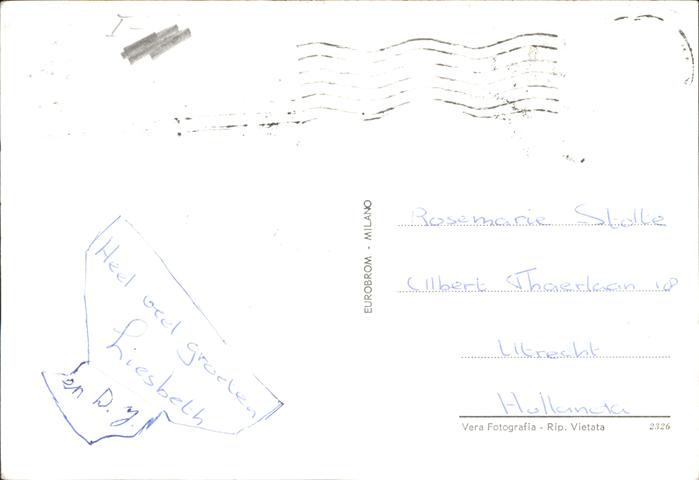 I
Heel veel groeten
Liesbeth
en D.y.
EUROBROM - MILANO
Rosemarie Stolte
Albert Thaerlaan 18
Utrecht
Hollanda
Vera Fotografia - Rip. Vietata 2326